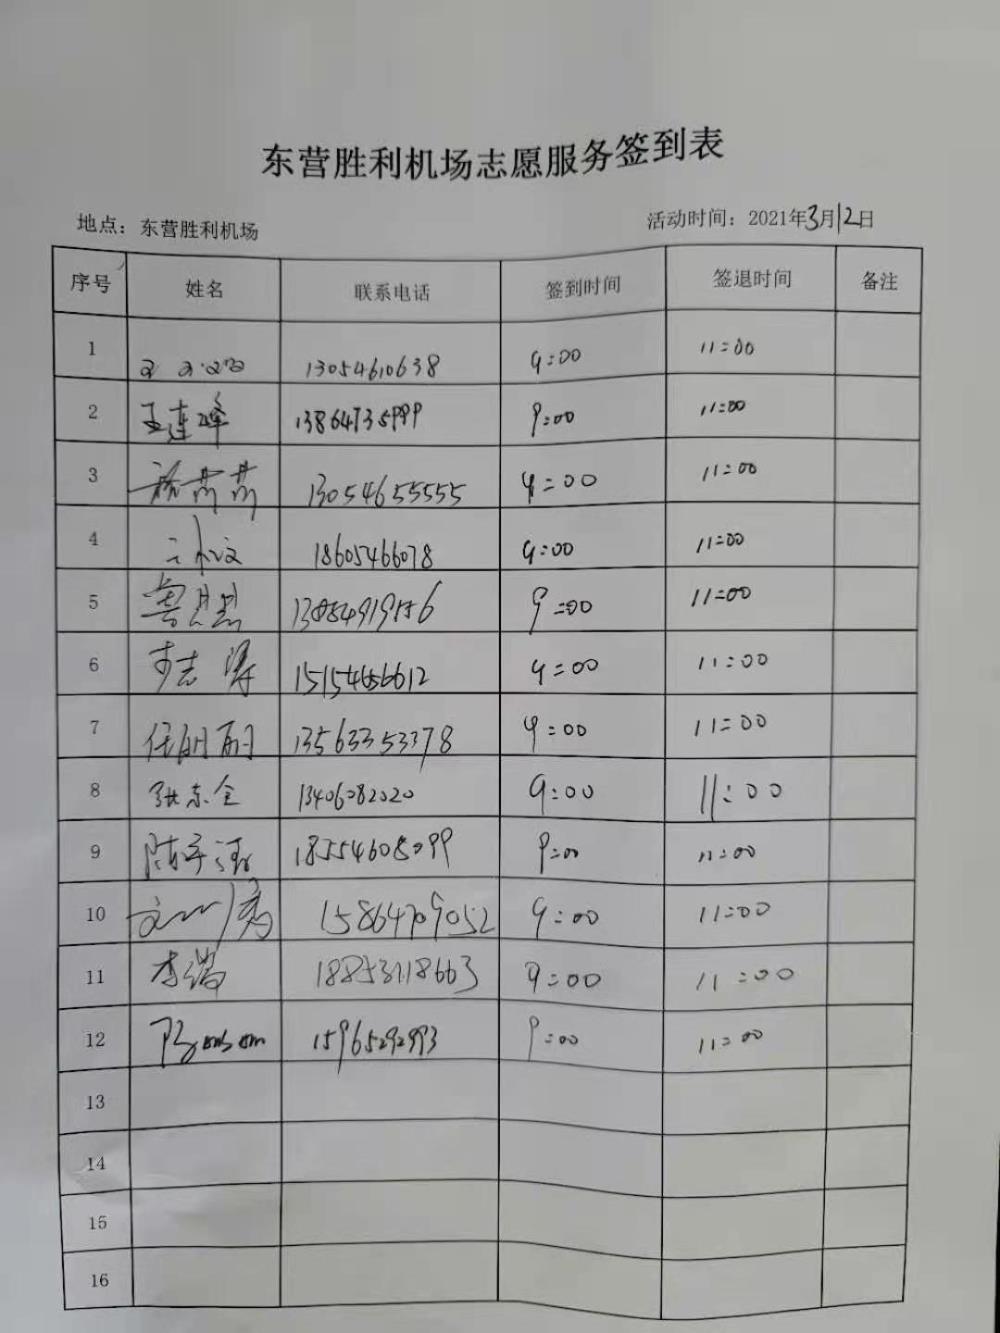 东营胜利机场志愿服务签到表
地点：东营胜利机场 活动时间：2021年3月12日
序号 姓名 联系电话 签到时间 签退时间 备注
1 13054610638 9:00 11:00
2 王连峰 13864735999 9:00 11:00
3 13054655555 9:00 11:00
4 18605466078 9:00 11:00
5 9:00 11:00
6 李志涛 15154656612 9:00 11:00
7 任明丽 13563353378 9:00 11:00
8 张东全 13406082020 9:00 11:00
9 18554608099 9:00 11:00
10 15864709052 9:00 11:00
11 李瑞 9:00 11:00
12 15965292993 9:00 11:00
13
14
15
16